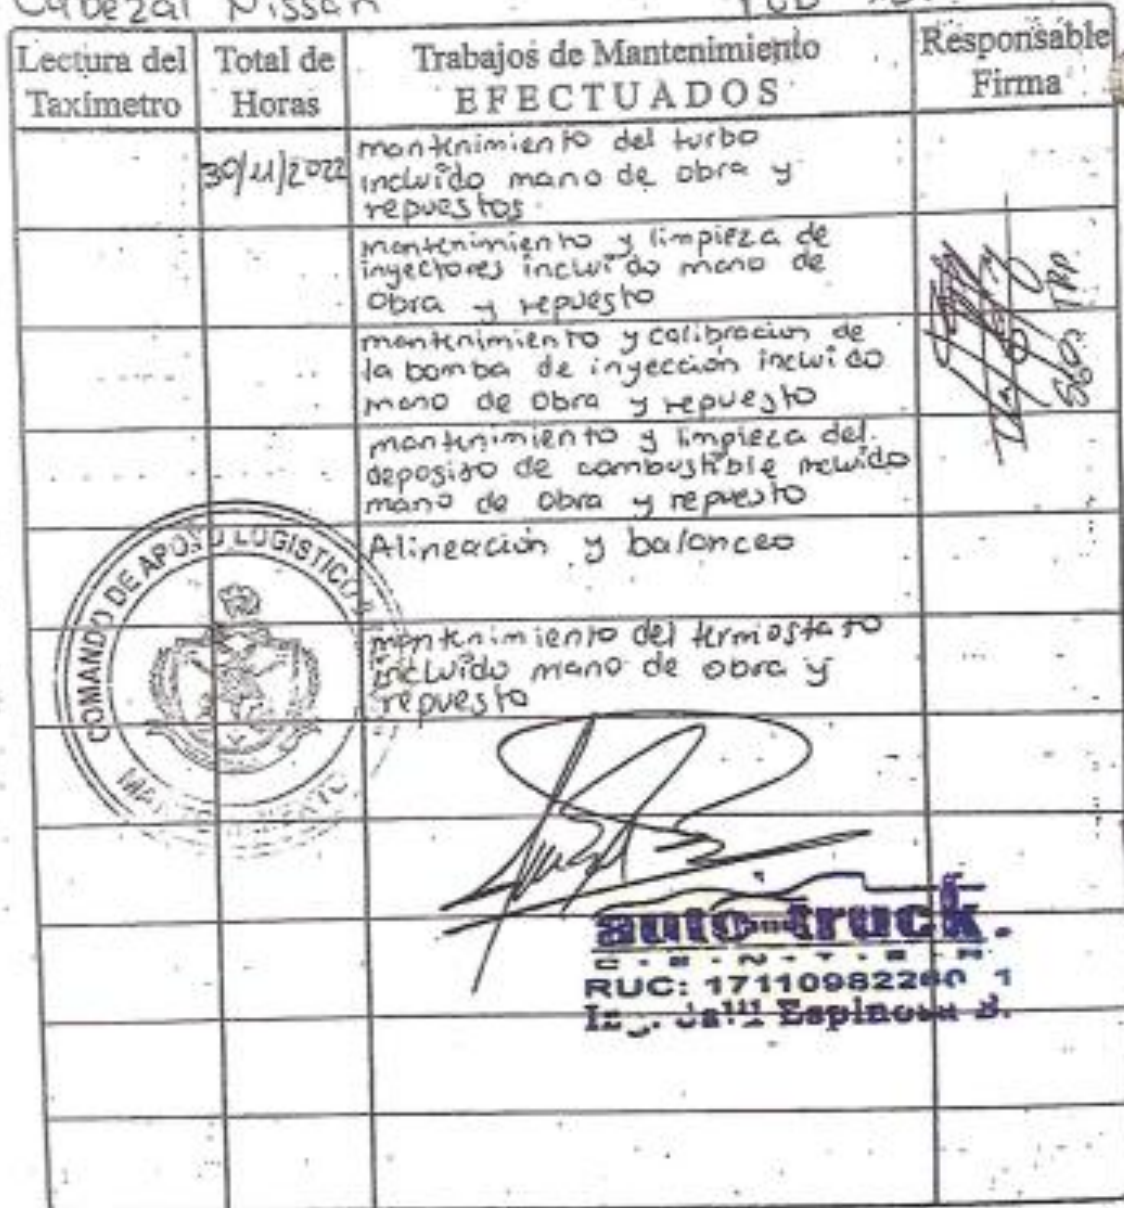 Cabezal Nissan
Lectura del Taxímetro
Total de Horas
Trabajos de Mantenimiento
EFECTUADOS
Responsable Firma
30/11/2022
mantenimiento del turbo
incluido mano de obra y
repuestos
mantenimiento y limpieza de
inyectores incluido mano de
obra y repuesto
mantenimiento y calibracion de
la bomba de inyección incluido
mano de obra y repuesto
mantenimiento y limpieza del
deposito de combustible incluido
mano de obra y repuesto
Alineación y balanceo
mantenimiento del termostato
incluido mano de obra y
repuesto
COMANDO DE APOYO LOGISTICO
Sgos. TRP.
auto-truck.
C·E·N·T·E·R
RUC: 1711098226
Ing. Espinosa B.